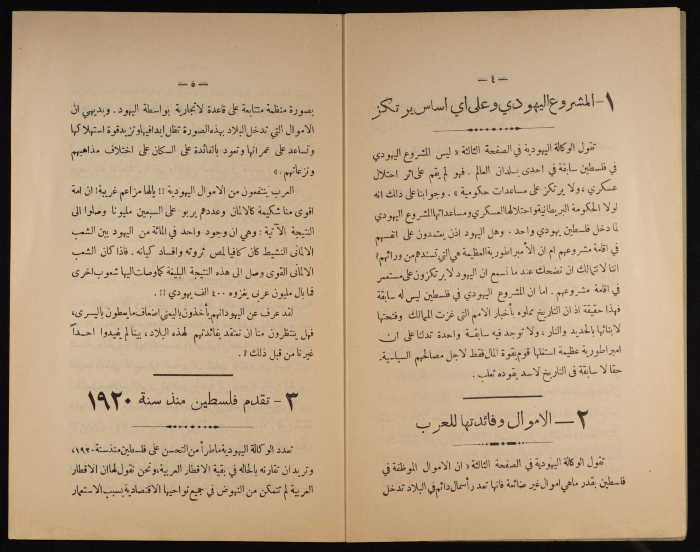 — ٤ —
١- المشروع اليهودي وعلى أي اساس يرتكز
تقول الوكالة اليهودية في الصفحة الثالثة « ليس المشروع اليهودي
في فلسطين سابقة في احدى بلدان العالم . فهو لم يقم على اثر احتلال
عسكري ، ولا يرتكز على مساعدات حكومية » . وجوابنا على ذلك انه
لولا الحكومة البريطانية واحتلالها العسكري ومساعداتها المشروع اليهودي
لما دخل فلسطين يهودي واحد . وهل اليهود اذن يعتمدون على انفسهم
في اقامة مشروعهم ام ان الأمبراطورية العظيمة هي التي تسندهم من ورائهم؟
اننا لا نتمالك ان نضحك عند ما نسمع ان اليهود لا يرتكزون على مستعمر
في اقامة مشروعهم . اما ان المشروع اليهودي في فلسطين ليس له سابقة
فهذا حقيقة اذ ان التاريخ مملوء بأخبار الامم التي غزت الممالك وفتحتها
لابنائها بالحديد والنار ، ولا توجد فيه سابقة واحدة تدلنا على ان
امبراطورية عظيمة استغلها قوم بقوة المال فقط لاجل مصالحهم السياسية.
حقا لا سابقة في التاريخ لاسد يقوده ثعلب .
٢ — الاموال وفائدتها للعرب
تقول الوكالة اليهودية في الصفحة الثالثة « ان الاموال الموظفة في
فلسطين بقدر ما هي اموال غير ضائعة فانها تعد رأسمال دائم في البلاد تدخل
— ٥ —
بصورة منظمة متتابعة على قاعدة لا تجارية بواسطة اليهود . وبديهي ان
الاموال التي تدخل البلاد بهذه الصورة تظل ابدا فيها وتزيد قوة استهلاكها
وتساعد على عمرانها وتعود بالفائدة على السكان على اختلاف مذاهبهم
ونزعاتهم . »
العرب ينتفعون من الاموال اليهودية !! يالها مزاعم غريبة! ان امة
اقوى منا شكيمة كالالمان وعددهم يربو على السبعين مليونا وصلوا الى
النتيجة الآتية : وهي ان وجود واحد في المائة من اليهود بين الشعب
الالماني النشيط كان كافيا لمص ثروته وافساد كيانه . فاذا كان الشعب
الالماني القوي وصل الى هذه النتيجة البليغة كما وصلت اليها شعوب اخرى
فما بال مليون عربي يغزوه ٤٠٠ الف يهودي !! .
لقد عرف عن اليهود انهم يأخذون باليمنى اضعاف ما يعطون باليسرى،
فهل ينتظرون منا ان نعتقد بفائدتهم لهذه البلاد ، بينا لم يفيدوا احداً
غيرنا من قبل ذلك ؟ .
٣ - تقدم فلسطين منذ سنة ١٩٢٠
تعدد الوكالة اليهودية ما طرأ من التحسن على فلسطين منذ سنة ١٩٢٠،
وتريد ان تقارنه بالحاله في بقية الاقطار العربية ، ونحن نقول لها ان الاقطار
العربية لم تتمكن من النهوض في جميع نواحيها الاقتصادية بسبب الاستعمار